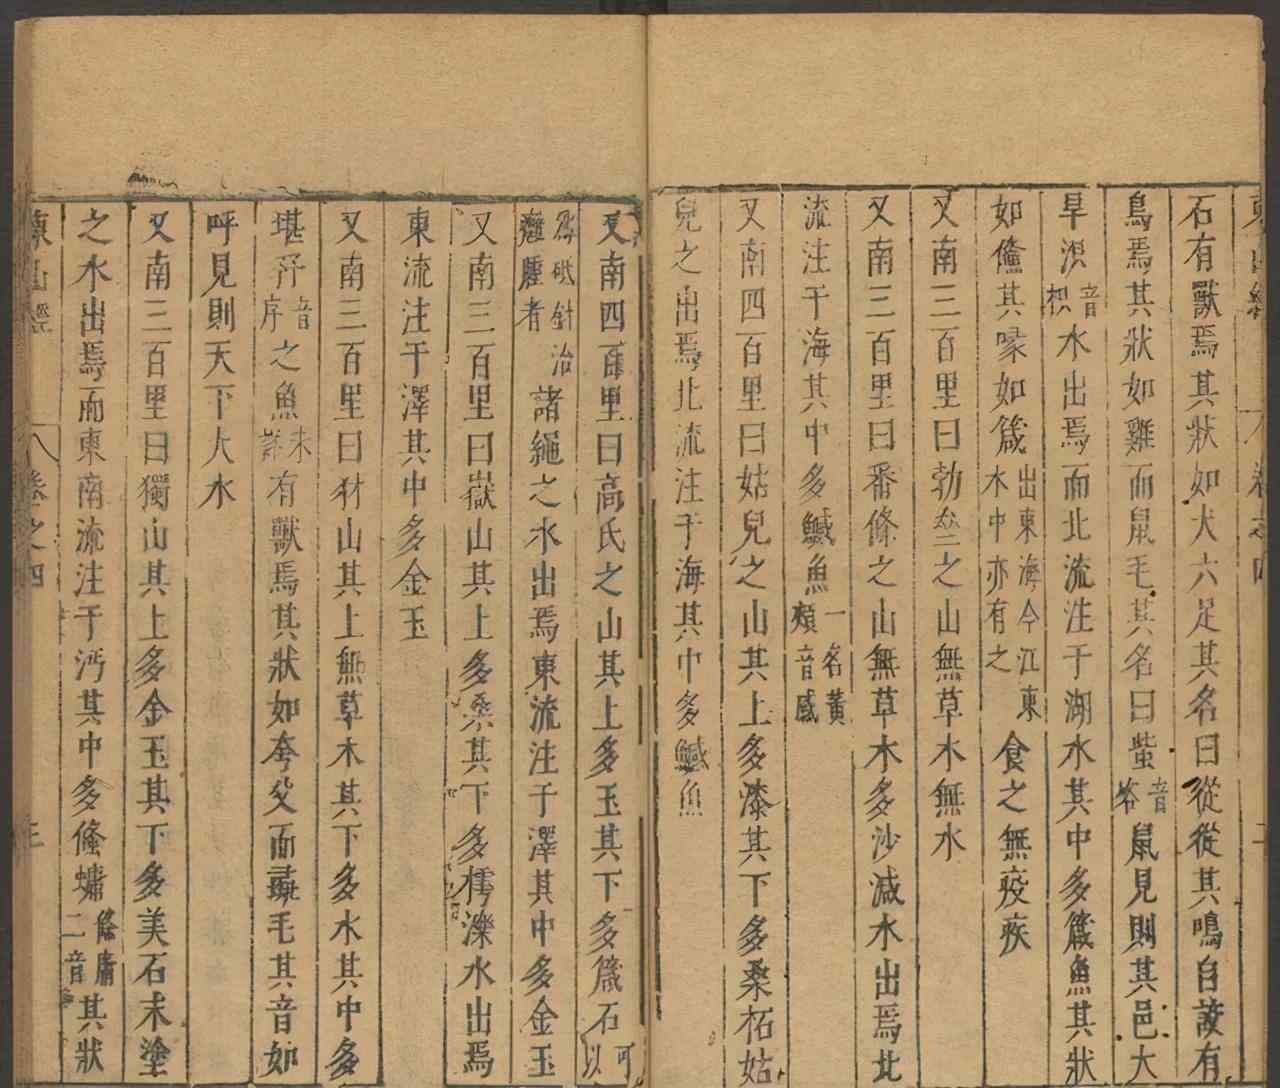 東山經 卷之四 二
石有獸焉其狀如犬六足其名曰從從其鳴自詨有
鳥焉其狀如雞而鼠毛其名曰蚩音咨鼠見則其邑大
旱沢音枳水出焉而北流注于湖水其中多箴魚其狀
如儵其喙如箴出東海今江東水中亦有之食之無疫疾
又南三百里曰勃亝之山無草木無水
又南三百里曰番條之山無草木多沙減水出焉北
流注于海其中多鱤魚一名黃頰音感
又南四百里曰姑兒之山其上多漆其下多桑柘姑
兒之出焉北流注于海其中多鱤魚
又南四百里曰高氏之山其上多玉其下多箴石可以
爲砥針治癰腫者諸繩之水出焉東流注于澤其中多金玉
又南三百里曰嶽山其上多桑其下多樗濼水出焉
東流注于澤其中多金玉
又南三百里曰犲山其上無草木其下多水其中多
堪㐨音序之魚未詳有獸焉其狀如夸父而彘毛其音如
呼見則天下大水
又南三百里曰獨山其上多金玉其下多美石末塗
之水出焉而東南流注于沔其中多䖺𧌁條庸二音其狀
東山經 卷之四 三